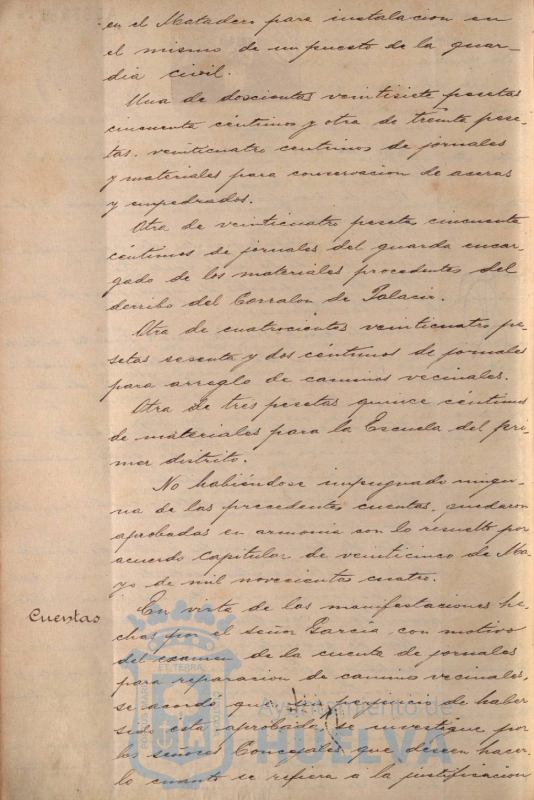 en el Matadero para instalacion en
el mismo de un puesto de la guar-
dia civil.
Una de doscientas veintisiete pesetas
cincuenta céntimos y otra de treinta pese-
tas veinticuatro centimos de jornales
y materiales para conservacion de aceras
y empedrados.
Otra de veinticuatro pesetas cincuenta
céntimos de jornales del guarda encar-
gado de los materiales procedentes del
derribo del Corralon de Palacio.
Otra de cuatrocientas veinticuatro pe-
setas sesenta y dos céntimos de jornales
para arreglo de caminos vecinales.
Otra de tres pesetas quince céntimos
de materiales para la Escuela del pri-
mer distrito.
No habiéndose impugnado ningu-
na de las precedentes cuentas, quedaron
aprobadas en armonia con lo resuelto por
acuerdo Capitular de veinticinco de Ma-
yo de mil novecientos cuatro.
Cuentas
En virtud de las manifestaciones he-
chas por el señor García con motivo
del examen de la cuenta de jornales
para reparacion de camino vecinales,
se acordó que sin perjuicio de haber
sido esta aprobada, se investigue por
los señores Concejales que deseen hacer-
lo cuanto se refiera a la justificacion
Ayuntamiento de
HUELVA